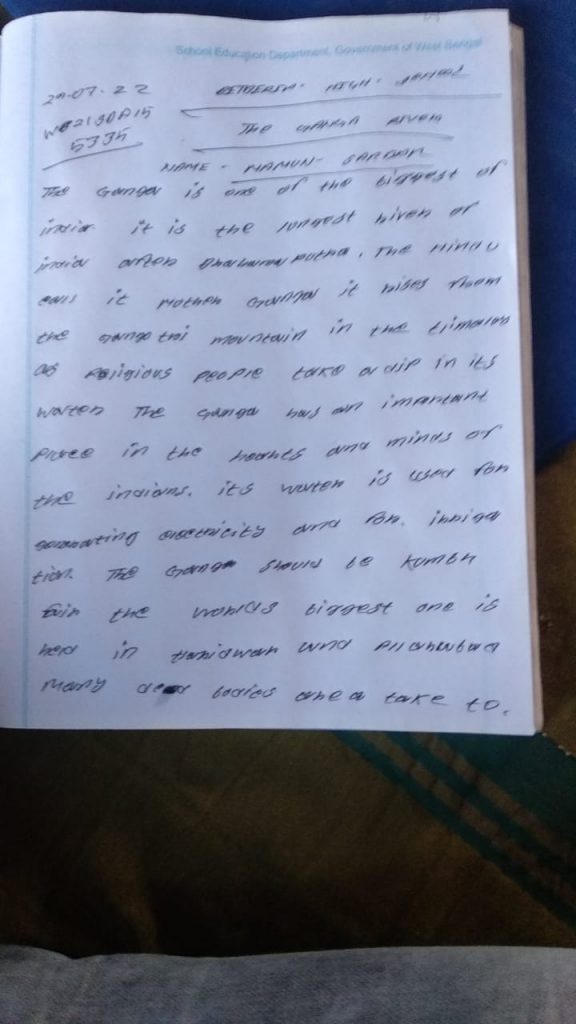 School Education Department, Government of West Bengal
29-07-22 HIGH
The GANGA RIVER
5335
NAME - MAMUN - SARDAR
The Ganga is one of the biggest of
india it is the longest river of
india after Bhahamaputra. The Hindu
calls it Mother Ganga it rises from
the gangotri mountain in the
as Religious People take a dip in its
water The Ganga has an important
Place in the hearts and minds of
the indians. its water is used for
genarating electricity and for. irriga
tion. The Ganga should be Kumbh
fair the worlds biggest one is
held in Haridwar and
Many dead bodies are a take to.